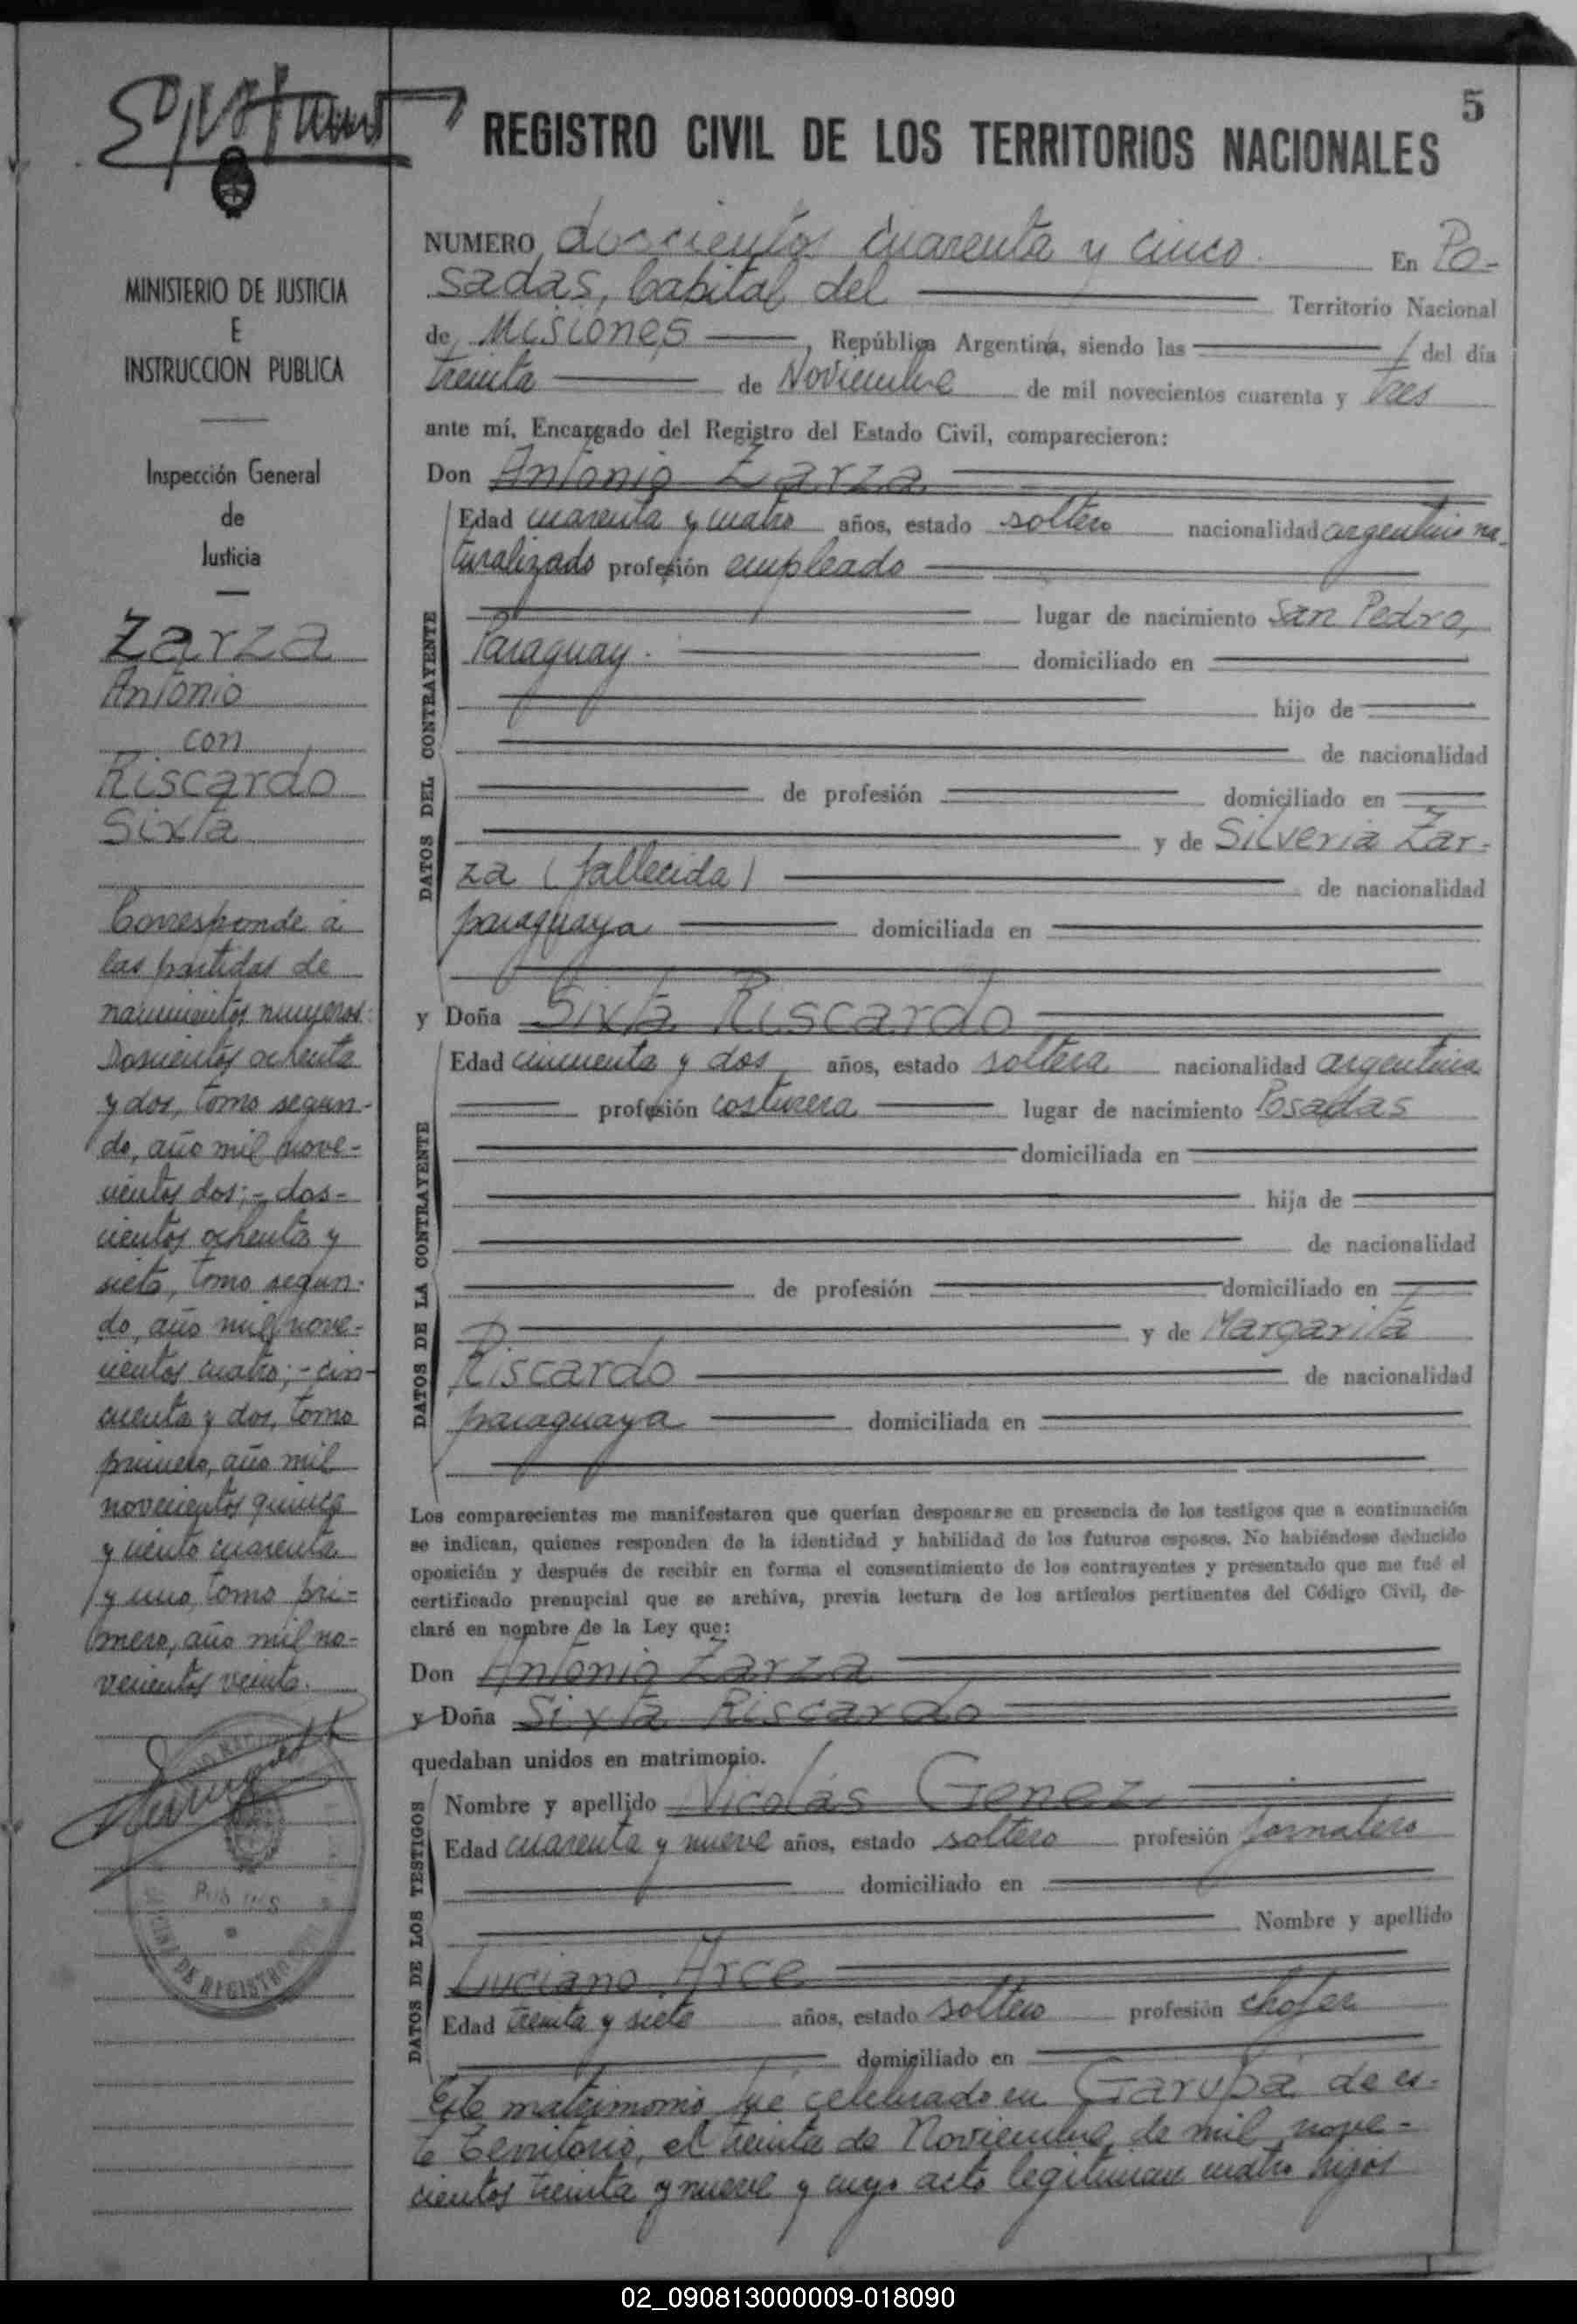 5
REGISTRO CIVIL DE LOS TERRITORIOS NACIONALES
MINISTERIO DE JUSTICIA
E
INSTRUCCION PUBLICA
Inspección General
de
Justicia
Zarza
Antonio
con
Riscardo
Sixta
Corresponde á
las partidas de
nacimientos numeros:
Doscientos ochenta
y dos, tomo segun-
do, año mil nove-
cientos dos; - dos-
cientos ochenta y
siete, tomo segun-
do, año mil nove-
cientos cuatro; - cin-
cuenta y dos, tomo
primero, año mil
novecientos quince
y ciento cuarenta
y uno, tomo pri-
mero, año mil no-
vecientos veinte.
DE REGISTRO
NUMERO doscientos cuarenta y cinco. En Po-
sadas, Capital del Territorio Nacional
de Misiones, República Argentina, siendo las del día
treinta de Noviembre de mil novecientos cuarenta y tres
ante mí, Encargado del Registro del Estado Civil, comparecieron:
Don Antonio Zarza
DATOS DEL CONTRAYENTE
Edad cuarenta y cuatro años, estado soltero nacionalidad argentino na-
turalizado profesión empleado
lugar de nacimiento San Pedro,
Paraguay. domiciliado en
hijo de
de nacionalidad
de profesión domiciliado en
y de Silveria Zar-
za (fallecida) de nacionalidad
paraguaya domiciliada en
y Doña Sixta Riscardo
DATOS DE LA CONTRAYENTE
Edad cincuenta y dos años, estado soltera nacionalidad argentina
profesión costurera lugar de nacimiento Posadas
domiciliada en
hija de
de nacionalidad
de profesión domiciliado en
y de Margarita
Riscardo de nacionalidad
paraguaya domiciliada en
Los comparecientes me manifestaron que querían desposarse en presencia de los testigos que a continuación
se indican, quienes responden de la identidad y habilidad de los futuros esposos. No habiéndose deducido
oposición y después de recibir en forma el consentimiento de los contrayentes y presentado que me fué el
certificado prenupcial que se archiva, previa lectura de los artículos pertinentes del Código Civil, de-
claré en nombre de la Ley que:
Don Antonio Zarza
y Doña Sixta Riscardo
quedaban unidos en matrimonio.
DATOS DE LOS TESTIGOS
Nombre y apellido Nicolás Genez
Edad cuarenta y nueve años, estado soltero profesión jornalero
domiciliado en
Nombre y apellido
Luciano Arce
Edad treinta y siete años, estado soltero profesión chofer
domiciliado en
Este matrimonio fué celebrado en Garupá de es-
te territorio, el treinta de Noviembre de mil nove-
cientos treinta y nueve y cuyo acto legitiman cuatro hijos
02_090813000009-018090